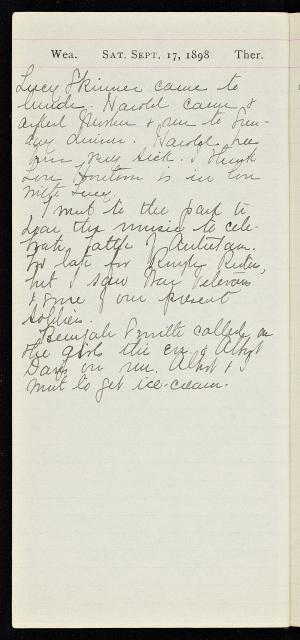 Wea. SAT. SEPT. 17, 1898 Ther.
Lucy Skinner came to
lunch. Harold came &
asked & me to Sun-
day dinner. Harold
very sick. I think
is in love
with Lucy.
I went to the park to
hear the music to cele-
brate battle of Antietam.
Too late for Rough Riders,
but I saw War Veterans
& some of our present
soldiers.
Smith called on
the girls this eve & Albert
Day on me. Albert & I
went to get ice-cream.